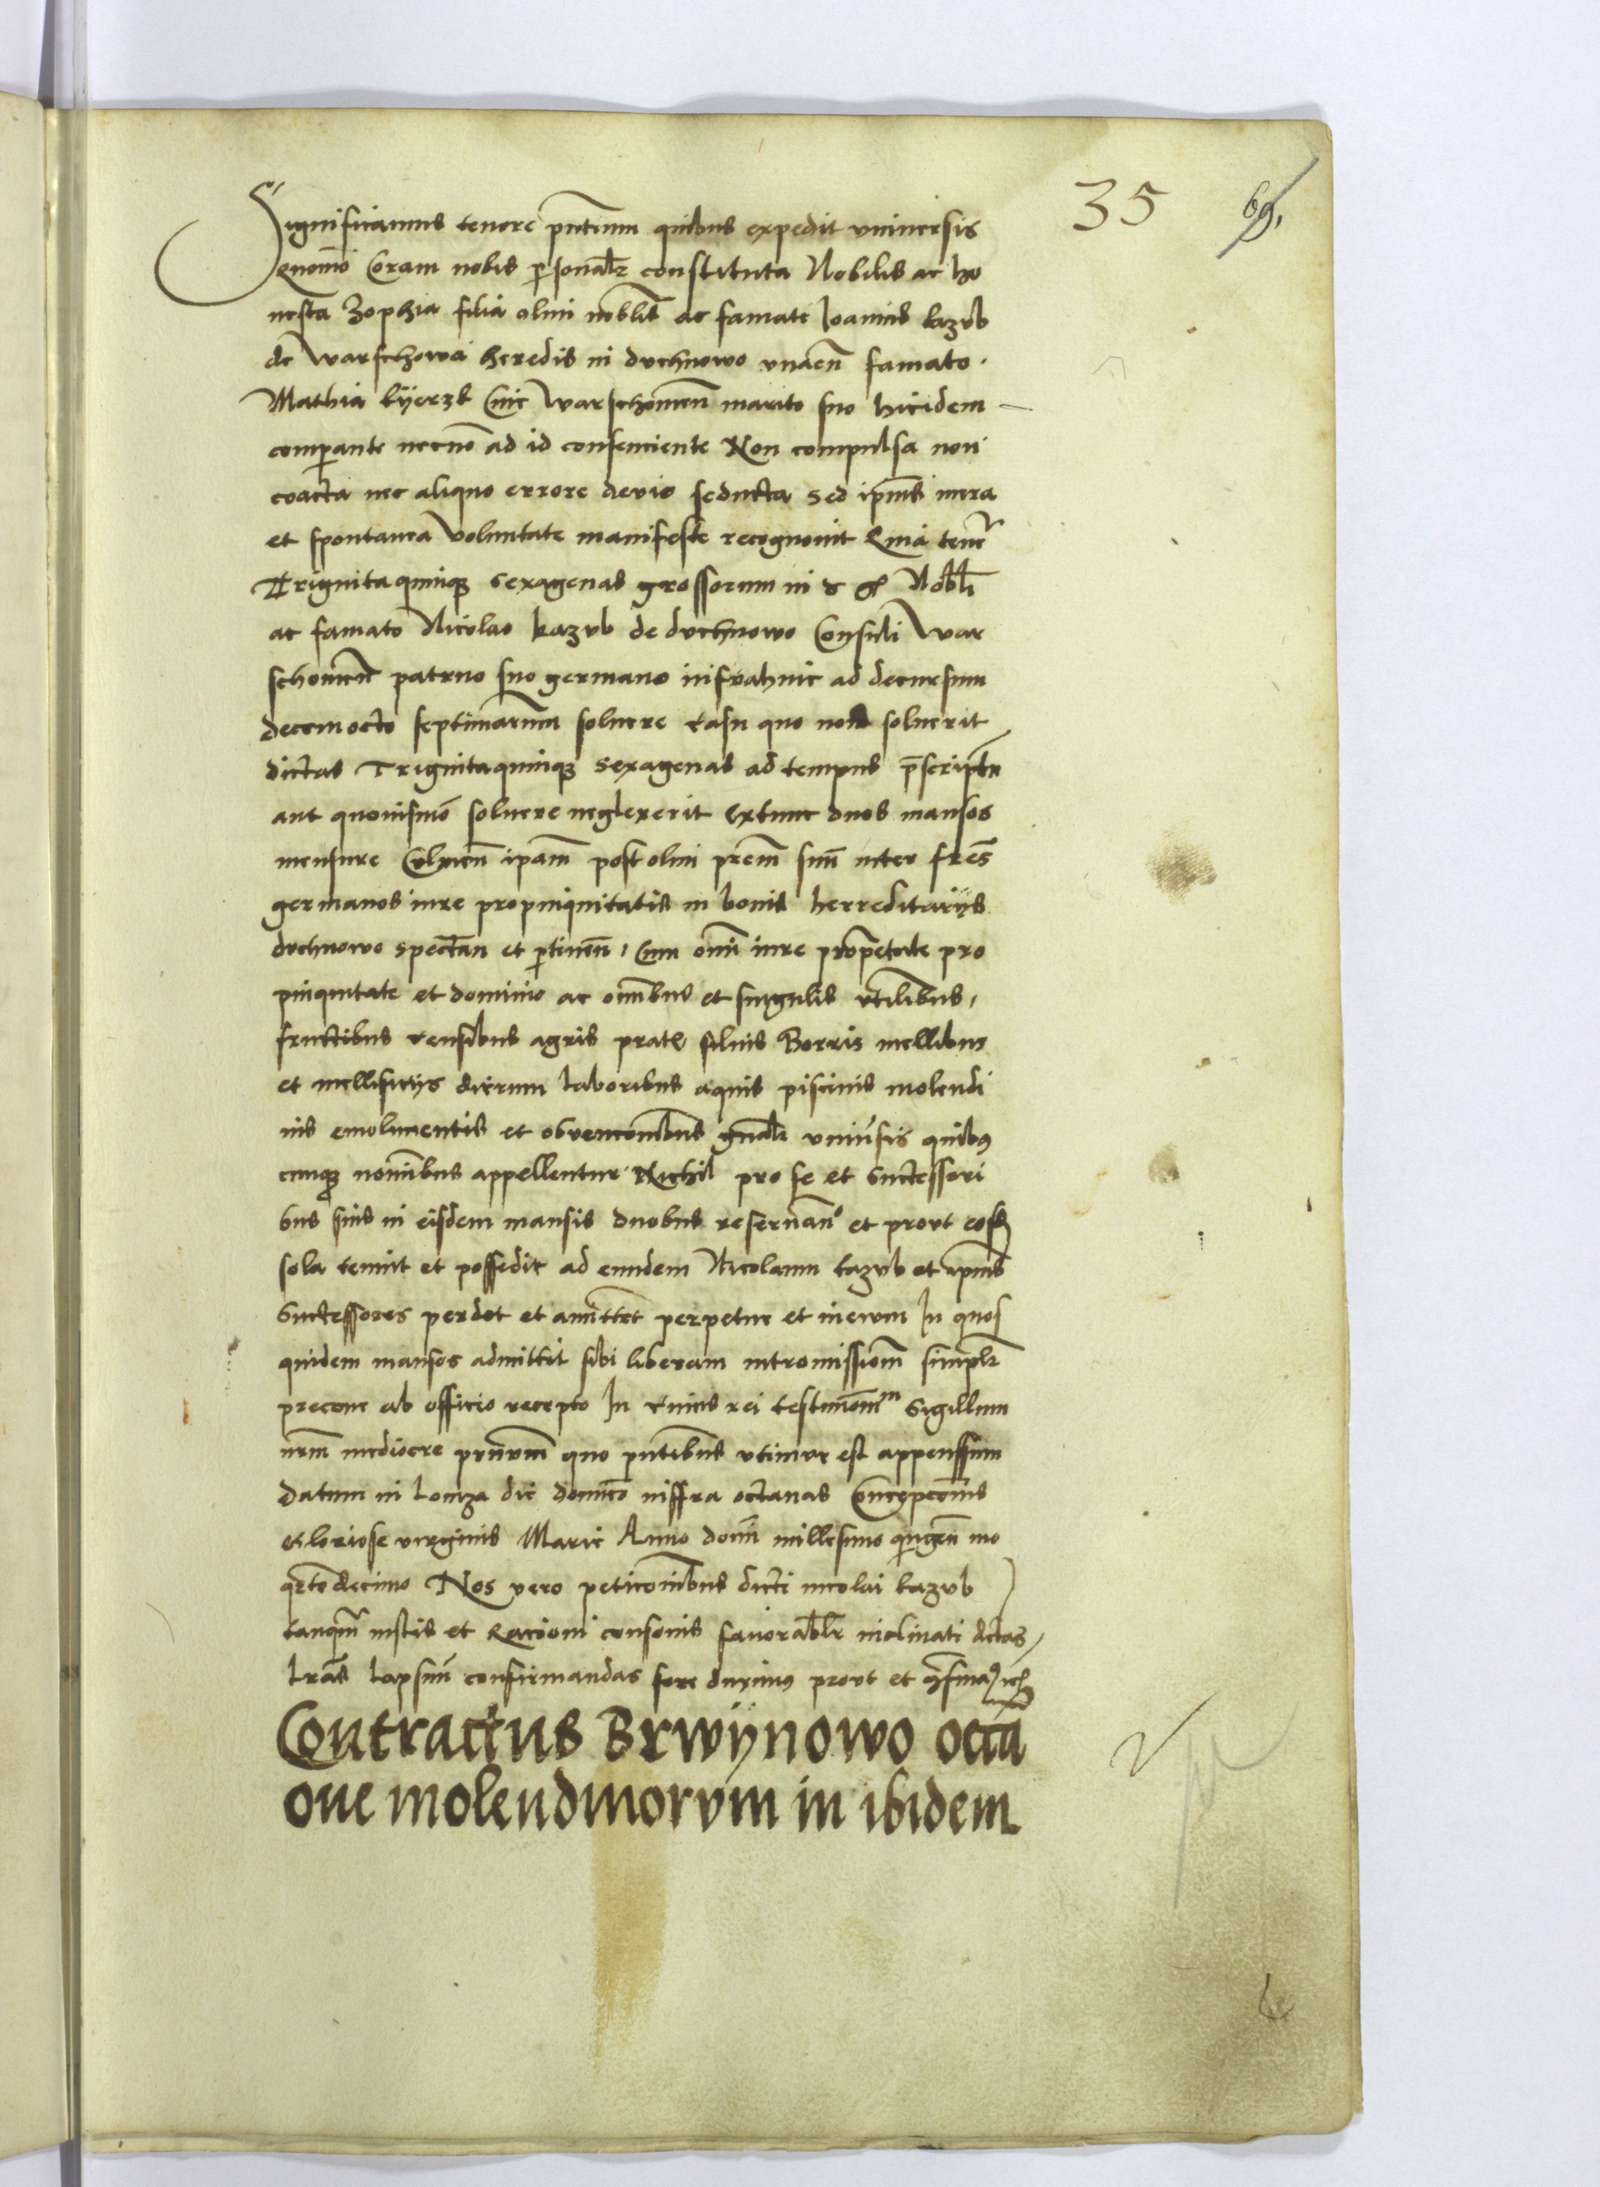 35 69
Significamus tenore pntium quibus expedit vniuersis
Quomo Coram nobis psonalr constituta Nobilis ac ho
nesta Zophia filia olim noblis ac famate Joannis kazvb
de Warschowa heredis in dvchnowo vnacn famato
Mathia kyerzk Ciue Warschouien marito suo hicidem
compante necno ad id consenciente Non compulsa non
coacta nec aliquo errore deuio seducta sed ipius mera
et spontanea Voluntate manifeste recognouit Quia tenetr
Triginta quinqz sexagenas grossorum in Nobli
ac famato Nicolao kazvb de dvchnowo Consuli War
schouien patruo suo germano infrahinc ad decursum
decemocto septimanarum soluere casu quo non soluerit
dictas Trigintaquinqz sexagenas ad tempus pscriptu
aut quouismo soluere neglexerit Extunc duos mansos
mensure Culmen ipam post olim prem suu inter fres
germanos iure propinquitatis in bonis herreditarijs
dvchnowo spectan et ptinen Cum omi iure propetate pro
pinquitate et dominio ac omibus et singulis vtilibus
fructibus censibus agris prat siluis Borris mellibus
et mellificijs dierum laboribus aquis piscinis molendi
nis emolumentis et obuencombus gnalr vniusis quibus
cunqz nomibus appellentur Nichil pro se et Successori
bus suis in eisdem mansis duobus reseruan et prout eosdem
sola tenuit et possedit ad eundem Nicolaum kazvb et ipius
Successores perdet et amittet perpetue et ineuum In quos
quidem mansos admittit sibi liberam intromissionem simplr
precone ab officio recepto In cuius rei testimonium Sigillum
nrm mediocre prnum quo pntibus vtimur est appenssum
Datum in Lomza die dominico infra octauas Concepcionis
Gloriose virginis Marie Anno domi millesimo quingen mo
qrtodecimo Nos vero peticonibus dicti nicolai kazvb
tanqm iustis et Racioni consonis fauorablr inclinati dctas
lras lapsum confirmandas fore duximus prout et
Contractus Brwÿnowo occa
one molendinorvm in ibidem